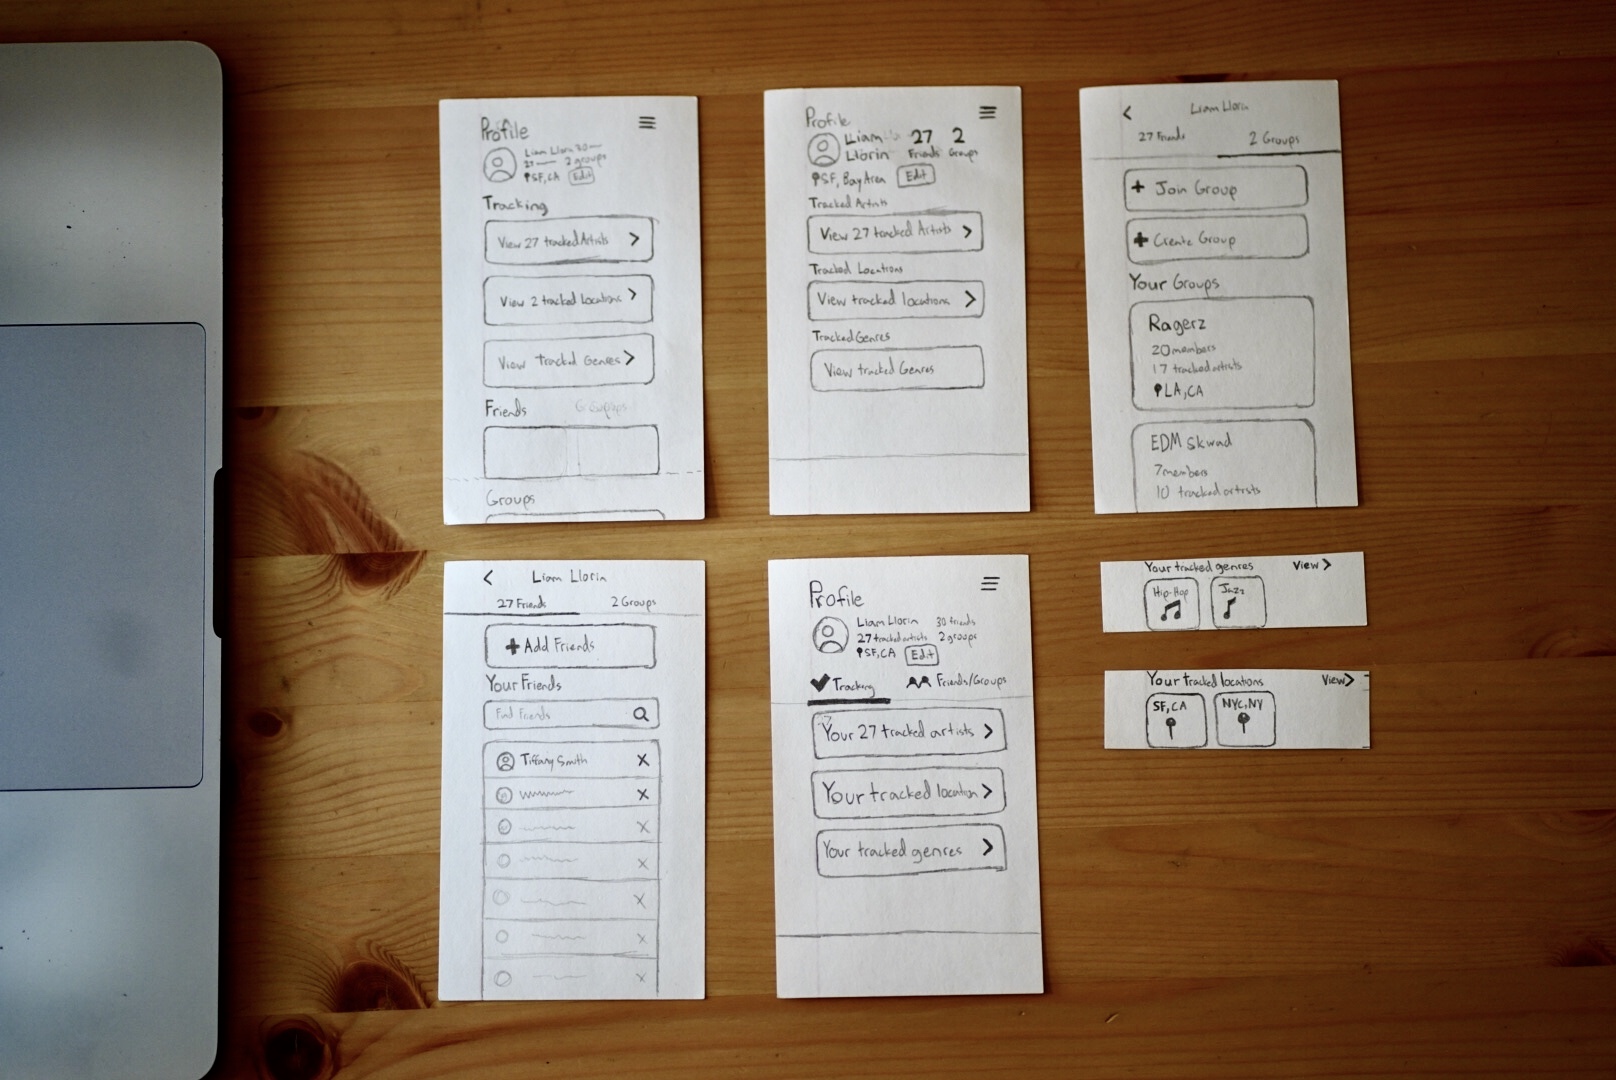 Profile
Liam Llorin 30
27 2 groups
SF, CA Edit
Tracking
View 27 tracked Artists
View 2 tracked Locations
View Tracked Genres
Friends
Groups
Profile
Lliam 27 2
Llorin Friends Groups
SF, Bay Area Edit
Tracked Artists
View 27 tracked Artists
Tracked Locations
View tracked locations
Tracked Genres
View tracked Genres
Liam Llorin
27 Friends 2 Groups
+ Join Group
+ Create Group
Your Groups
Ragerz
20 members
17 tracked artists
LA, CA
EDM Skwad
7 members
10 tracked artists
Liam Llorin
27 Friends 2 Groups
+ Add Friends
Your Friends
Find Friends
Tiffany Smith X
Profile
Liam Llorin 30 friends
27 tracked artists 2 groups
SF, CA Edit
Tracking Friends/Groups
Your 27 tracked artists
Your tracked location
Your tracked genres
Your tracked genres View
Hip-Hop Jazz
Your tracked locations View
SF, CA NYC, NY